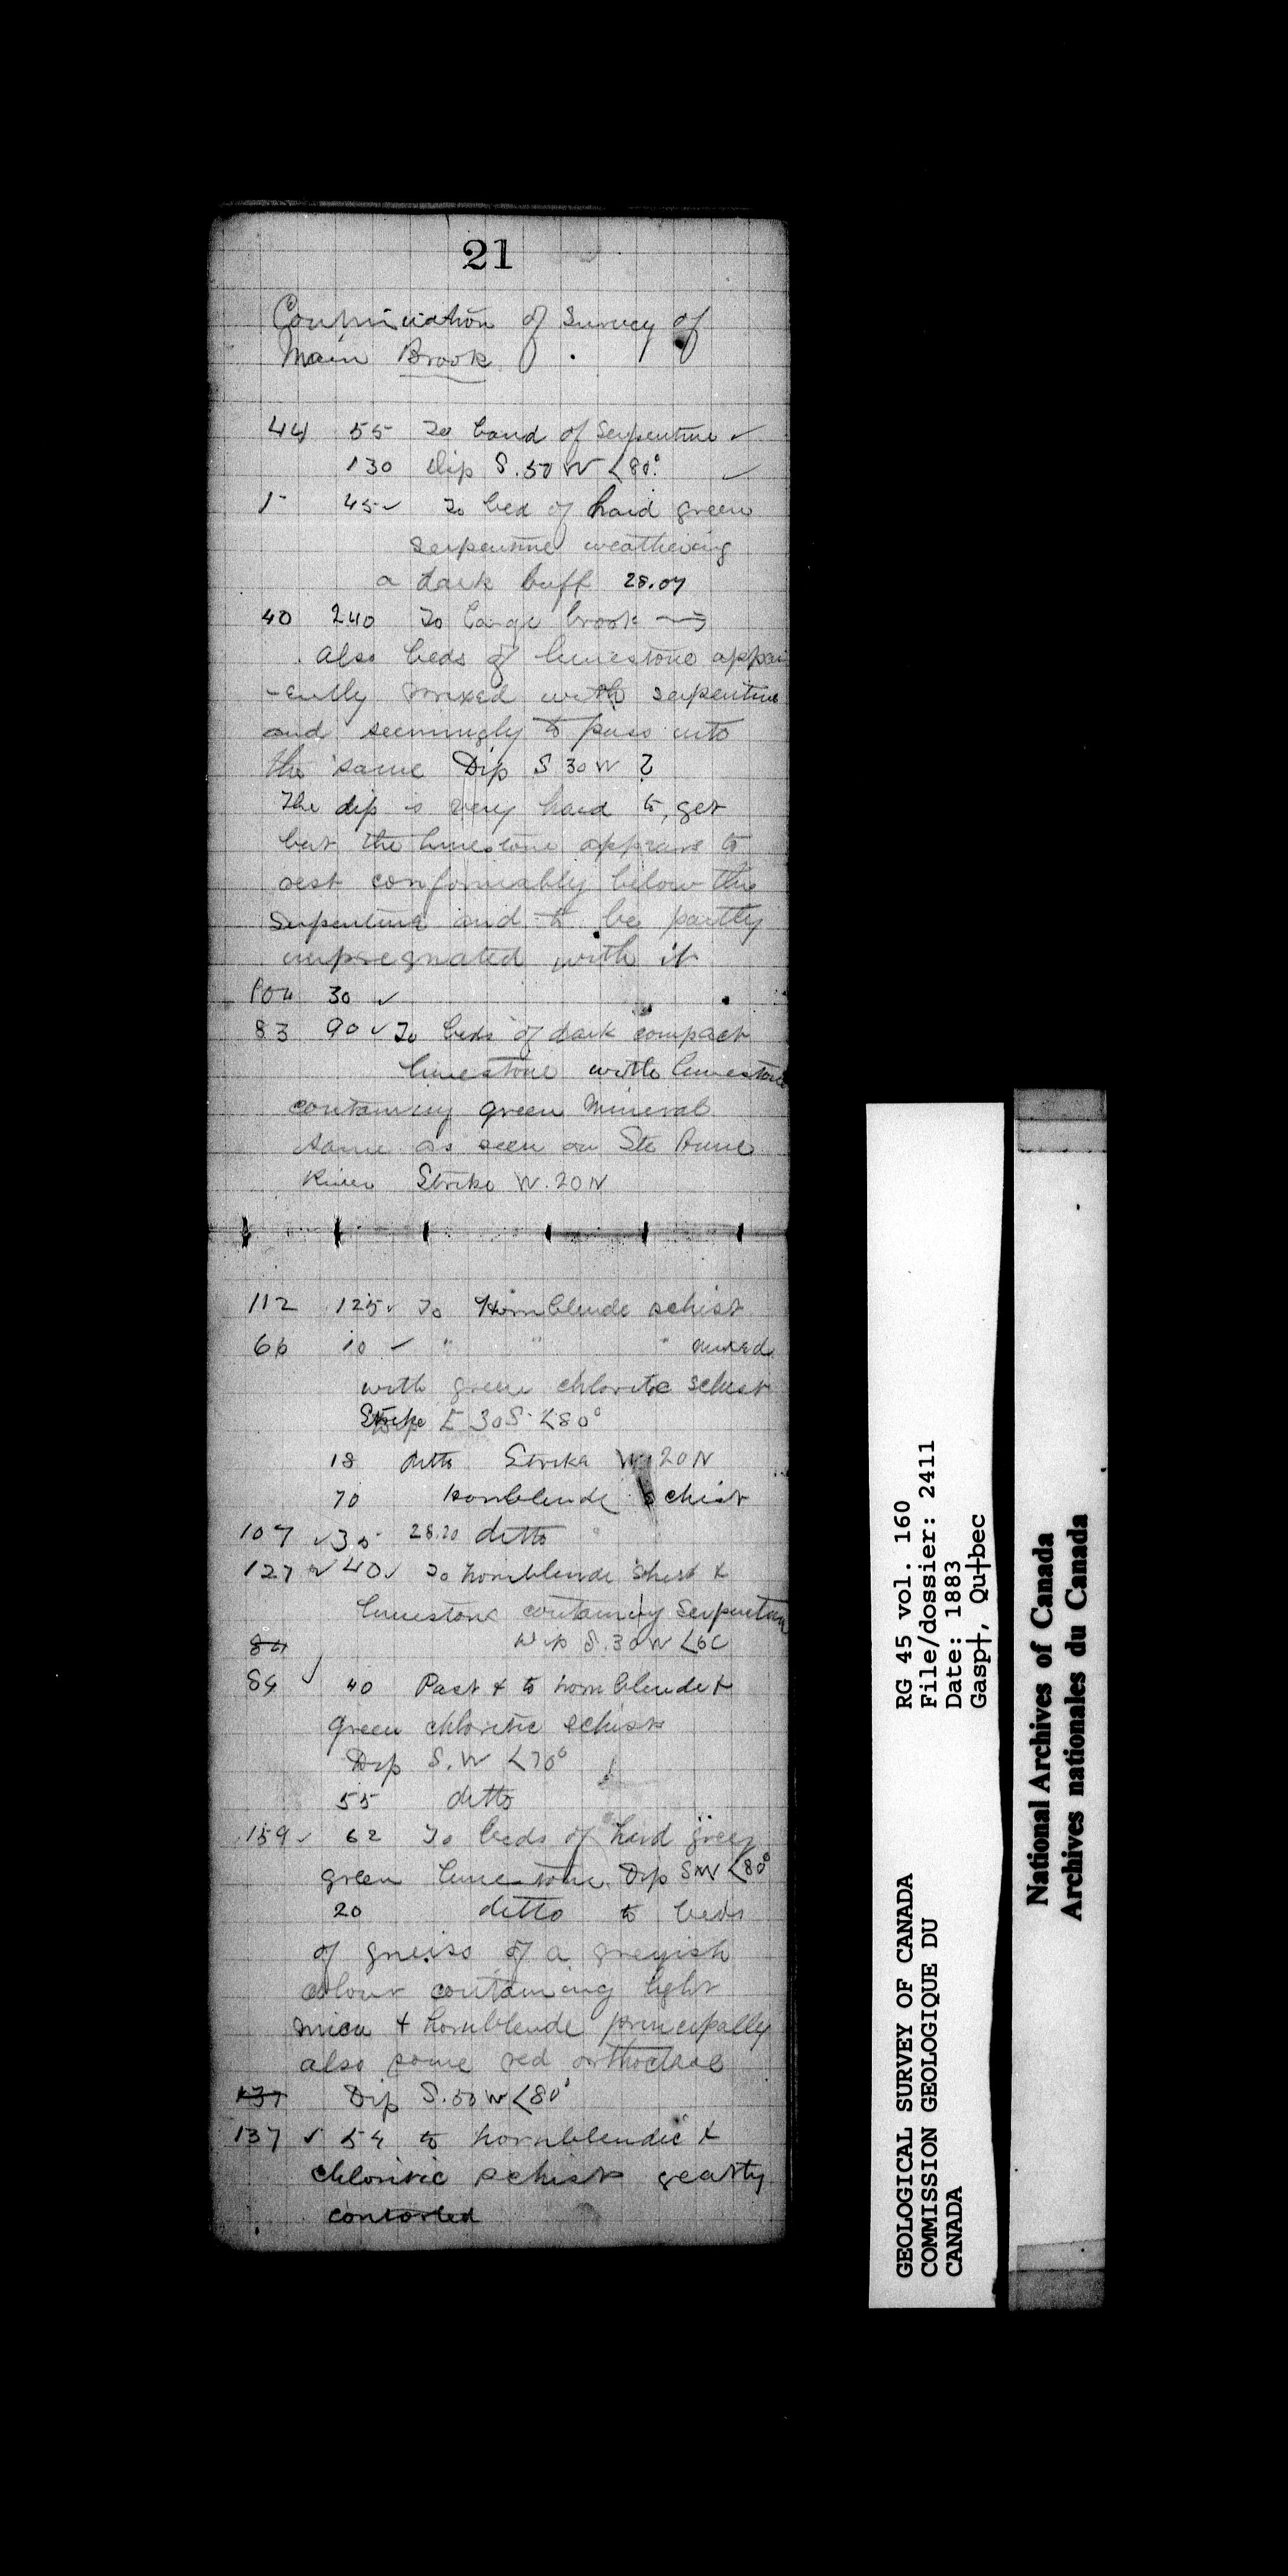 21
Continuation of Survey of
Main Brook
44 55 To band of Serpentine ✓
130 Dip S.50 W <80° ✓
1 45 ✓ To bed of hard green
serpentine weathering
a dark buff 28.07
40 240 To large brook →
also beds of limestone appar
-ently mixed with serpentine
and seemingly to pass into
the same Dip S 30 W ?
The dip is very hard to get
but the limestone appears to
rest conformably below the
Serpentine and to be partly
impregnated with it
104 30 ✓
83 90 ✓ To beds of dark compact
limestone with limestone
containing green mineral
same as seen on Ste Anne
River Strike W.20N
112 125 ✓ To Hornblende schist
66 10 ✓ " " " mixed
with green chlorite schist
Strike E 30S <80°
18 ditto Strike W 20N
70 Hornblende schist
107 ✓ 35 28.20 ditto
127 ✓ 40 ✓ To hornblende schist &
limestone containing Serpentine
84 Dip S.30W <60
84 ✓ 40 Past & to hornblende &
green chloritic schists
Dip S.W <70°
55 ditto
159 ✓ 62 To beds of hard green
green limestone Dip SW <80°
20 ditto to beds
of gneiss of a greyish
colour containing light
mica & hornblende principally
also some red orthoclase
137 Dip S.50W <80°
137 ✓ 54 to hornblendic &
chloritic schists geatty
contorted
GEOLOGICAL SURVEY OF CANADA
COMMISSION GEOLOGIQUE DU
CANADA
RG 45 vol. 160
File/dossier: 2411
Date: 1883
Gasp┼, Qu┼bec
National Archives of Canada
Archives nationales du Canada